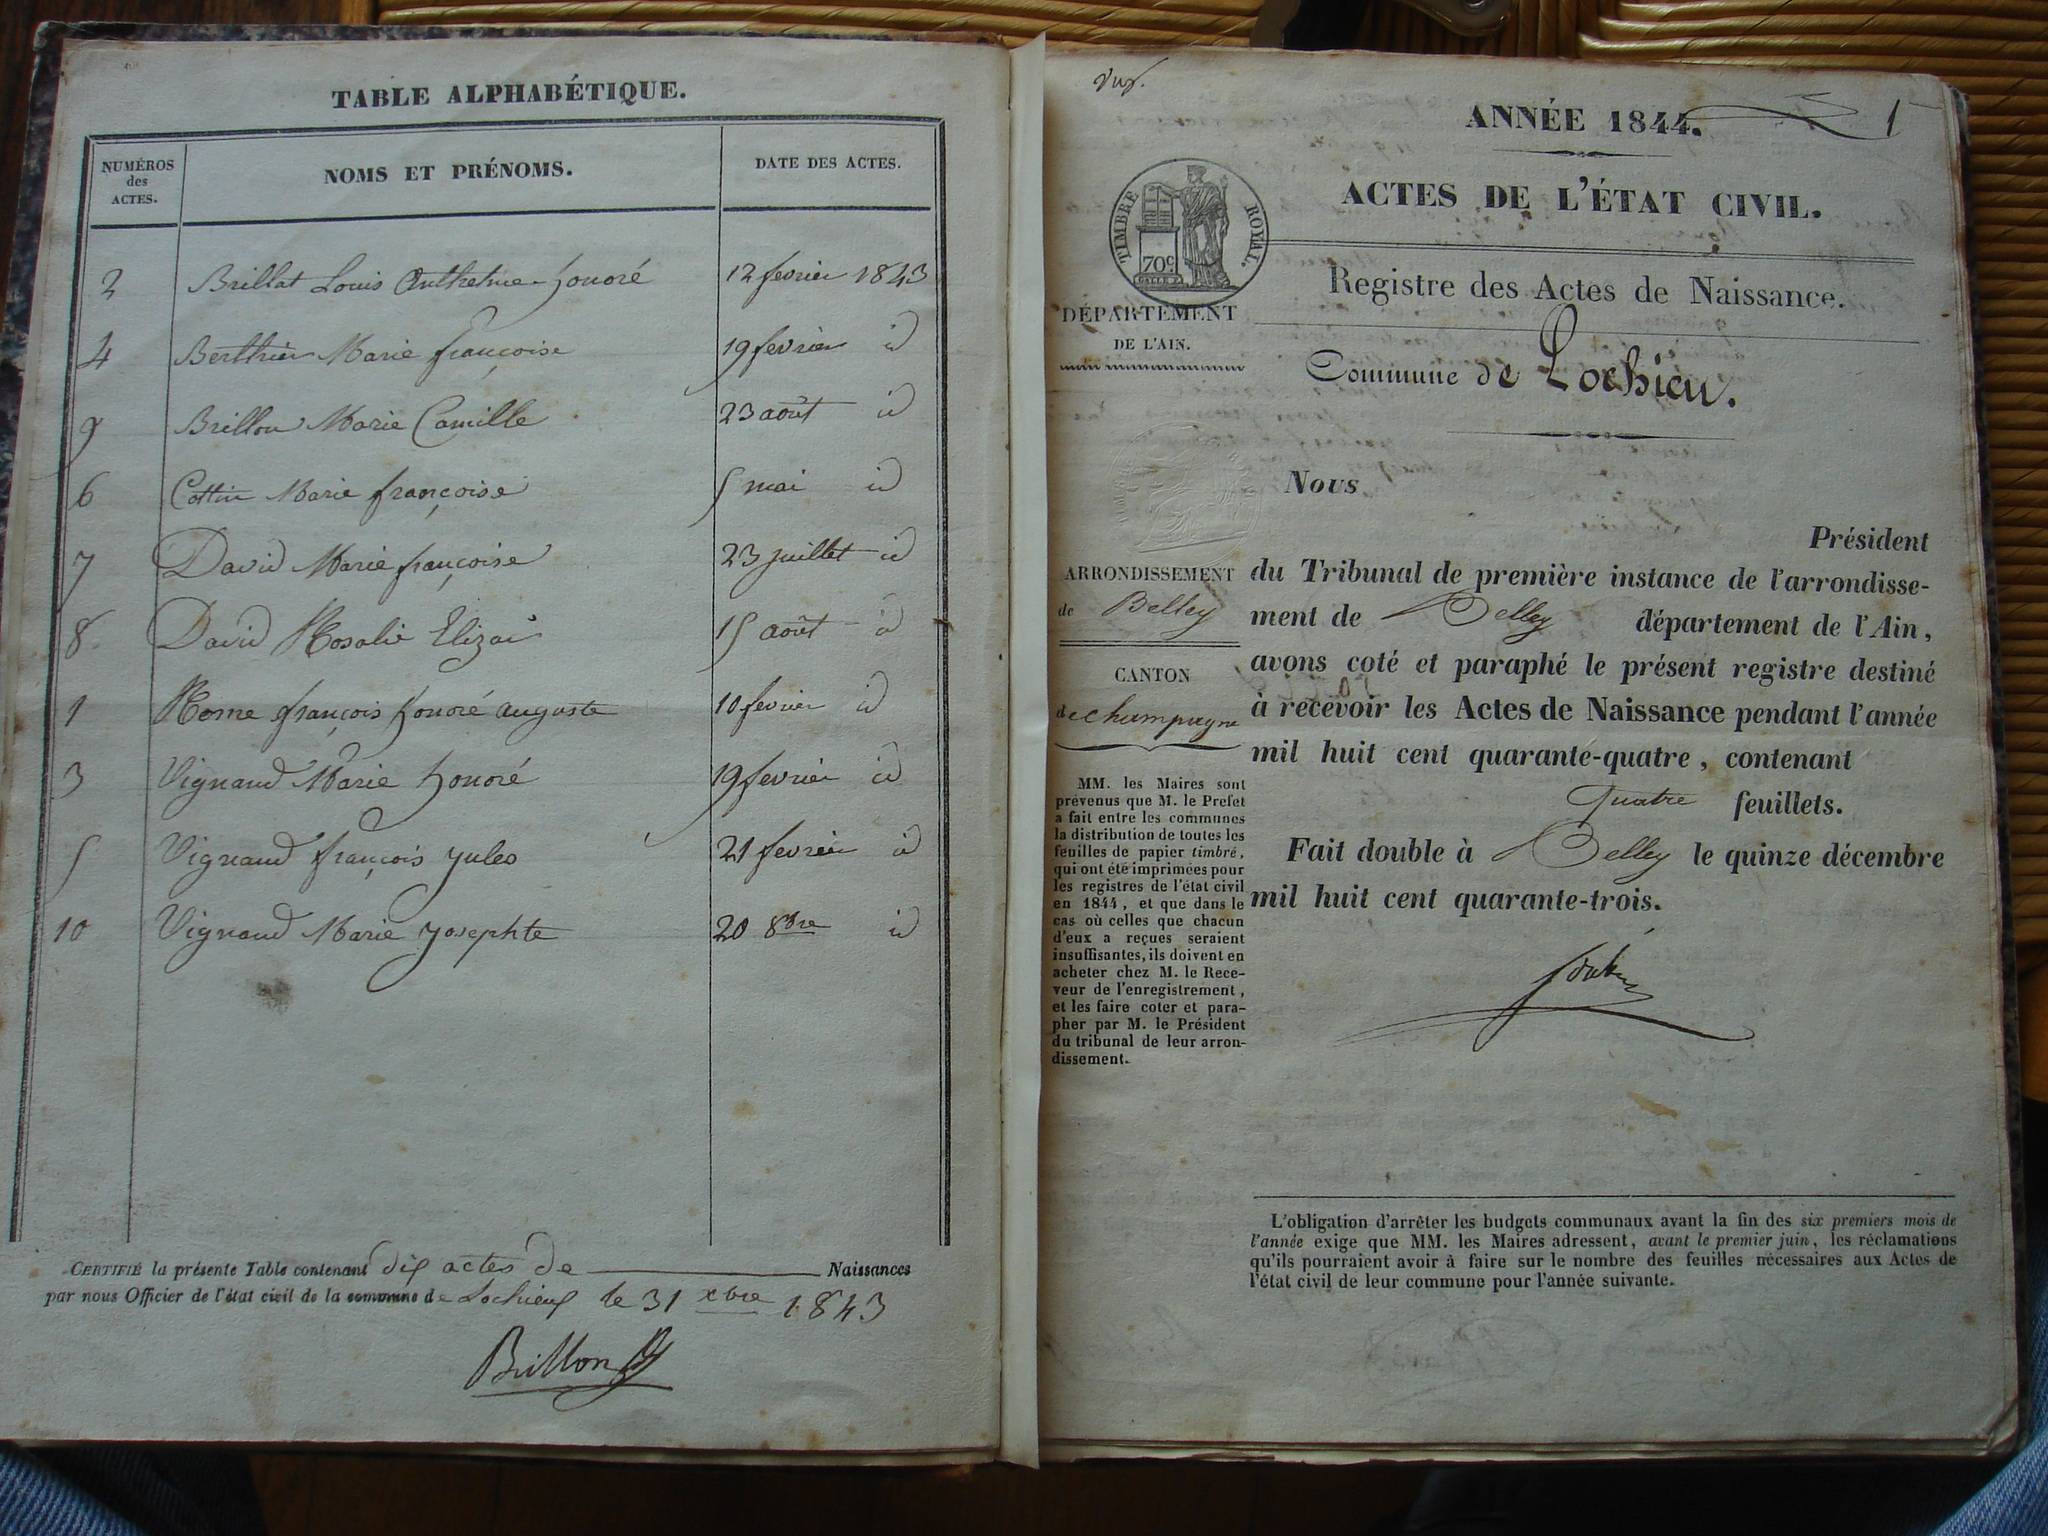 TABLE ALPHABÉTIQUE.
NUMÉROS des ACTES. NOMS ET PRÉNOMS. DATE DES ACTES.
2 Brillat Louis Anthelme honoré 12 fevrier 1843
4 Berthier Marie françoise 19 fevrier id
9 Brillon Marie Camille 23 août id
6 Cottin Marie françoise 5 mai id
7 David Marie françoise 23 juillet id
8 David Rosalie Eliza 15 août id
1 françois honoré auguste 10 fevrier id
3 Vignaud Marie honoré 19 fevrier id
5 Vignaud françois jules 21 fevrier id
10 Vignaud Marie josephte 20 8bre id
CERTIFIÉ la présente Table contenant dix actes de Naissances
par nous Officier de l'état civil de la commune de Lochieu le 31 xbre 1843
Brillon
ANNÉE 1844. 1
ACTES DE L'ÉTAT CIVIL.
TIMBRE ROYAL.
70c
Registre des Actes de Naissance.
DÉPARTEMENT
DE L'AIN.
Commune de Lochieu.
Nous
Président
ARRONDISSEMENT
de Belley
CANTON
de champagne
du Tribunal de première instance de l'arrondisse-
ment de Belley département de l'Ain,
avons coté et paraphé le présent registre destiné
à recevoir les Actes de Naissance pendant l'année
mil huit cent quarante-quatre, contenant
Quatre feuillets.
Fait double à Belley le quinze décembre
mil huit cent quarante-trois.
MM. les Maires sont
prévenus que M. le Prefet
a fait entre les communes
la distribution de toutes les
feuilles de papier timbré,
qui ont été imprimées pour
les registres de l'état civil
en 1844, et que dans le
cas où celles que chacun
d'eux a reçues seraient
insuffisantes, ils doivent en
acheter chez M. le Rece-
veur de l'enregistrement,
et les faire coter et para-
pher par M. le Président
du tribunal de leur arron-
dissement.
L'obligation d'arrêter les budgets communaux avant la fin des six premiers mois de
l'année exige que MM. les Maires adressent, avant le premier juin, les réclamations
qu'ils pourraient avoir à faire sur le nombre des feuilles nécessaires aux Actes de
l'état civil de leur commune pour l'année suivante.